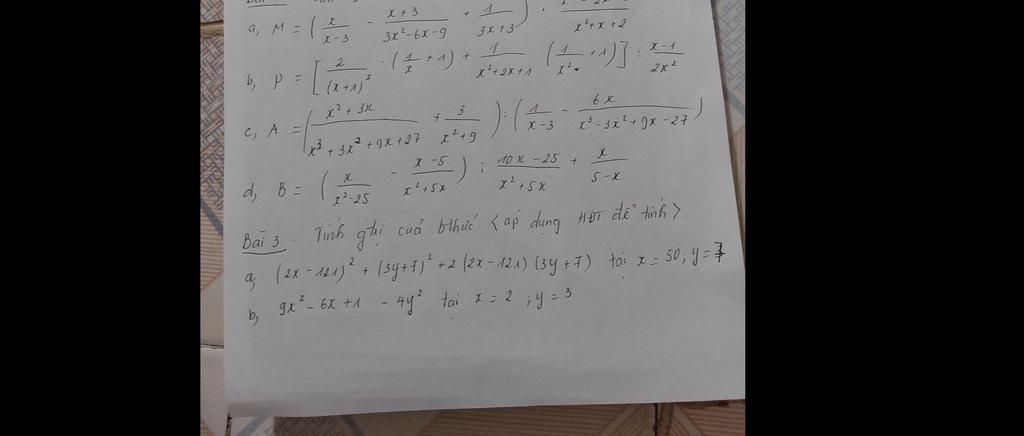 a, M = ( x/(x-3) - (x+3)/(3x²-6x-9) + 1/(3x+3) ) . /(x²+x+2)
b, P = [ 2/(x+1)² . (1/x + 1) + 1/(x²+2x+1) (1/x² + 1) ] : (x-1)/(2x²)
c, A = ( (x²+3x)/(x³+3x²+9x+27) + 3/(x²+9) ) : ( 1/(x-3) - 6x/(x³-3x²+9x-27) )
d, B = ( x/(x²-25) - (x-5)/(x²+5x) ) : (10x-25)/(x²+5x) + x/(5-x)
Bài 3. Tính gtrị cuả bthức <áp dụng HĐT để tính>.
a, (2x-121)² + (3y+7)² + 2(2x-121)(3y+7) tại x = 50; y = 7
b, 9x² - 6x + 1 - 4y² tại x = 2 ; y = 3